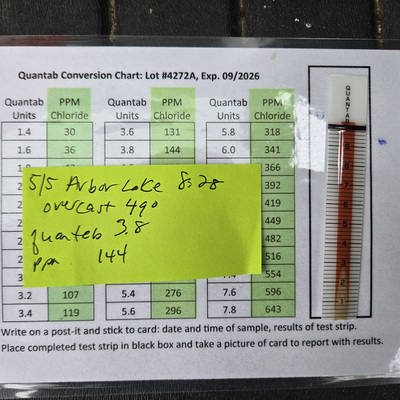 Quantab Conversion Chart: Lot #4272A, Exp. 09/2026
QUANTAB
Quantab Units PPM Chloride Quantab Units PPM Chloride Quantab Units PPM Chloride
1.4 30 3.6 131 5.8 318
1.6 36 3.8 144 6.0 341
366
392
419
449
482
516
554
5/5 Arbor Lake 8:28
overcast 49°
quantab 3.8
ppm 144
3.2 107 5.4 276 7.6 596
3.4 119 5.6 296 7.8 643
Write on a post-it and stick to card: date and time of sample, results of test strip.
Place completed test strip in black box and take a picture of card to report with results.